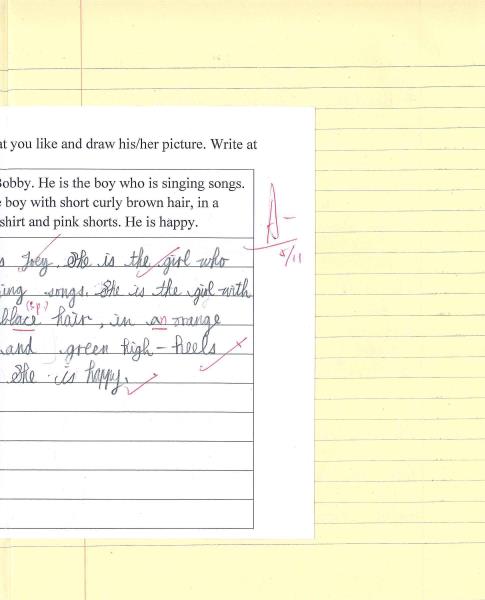 at you like and draw his/her picture. Write at
Bobby. He is the boy who is singing songs.
e boy with short curly brown hair, in a
shirt and pink shorts. He is happy.
s Joey. She is the girl who
ing songs. She is the girl with
(sp.)
blace hair, in an orange
and green high-heels
She is happy.
A-
5/11